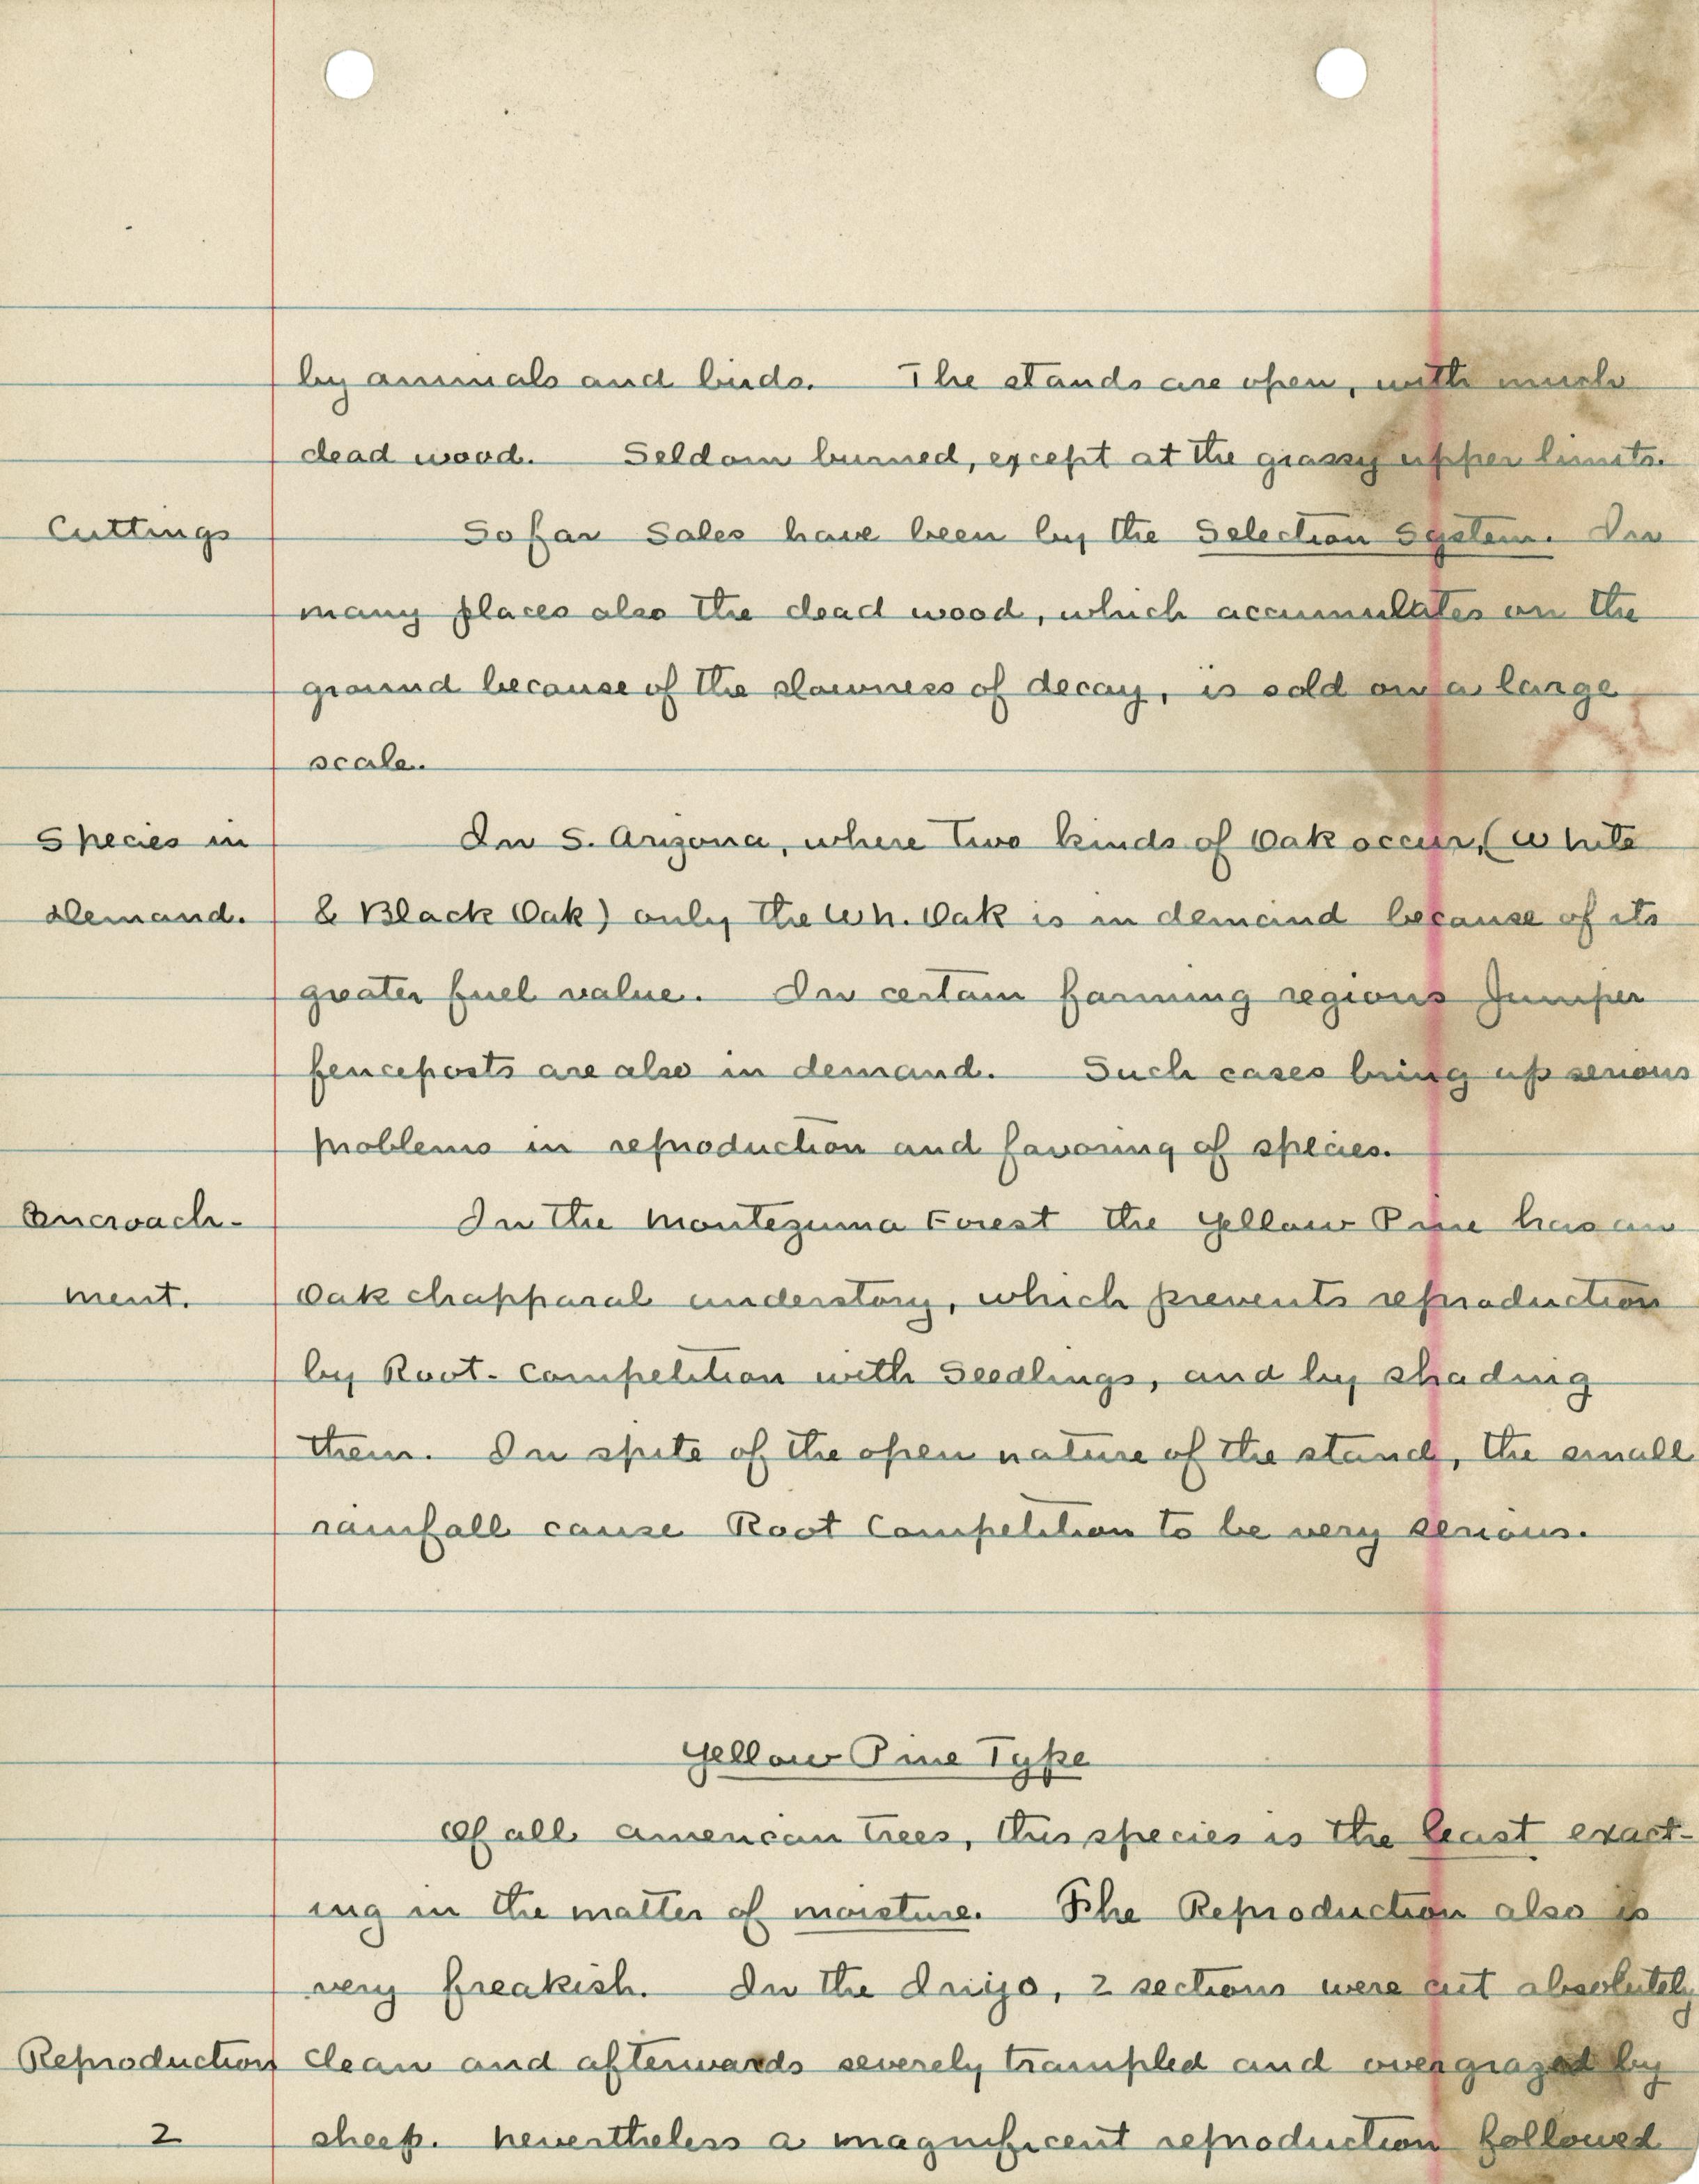 by animals and birds. The stands are open, with much
dead wood. Seldom burned, except at the grassy upper limits.
Cuttings So far Sales have been by the Selection System. In
many places also the dead wood, which accumulates on the
ground because of the slowness of decay, is sold on a large
scale.
Species in In S. Arizona, where two kinds of Oak occur, (White
demand. & Black Oak) only the Wh. Oak is in demand because of its
greater fuel value. In certain farming regions Juniper
fenceposts are also in demand. Such cases bring up serious
problems in reproduction and favoring of species.
Encroach- In the Montezuma Forest the Yellow Pine has an
ment. Oak chapparal understory, which prevents reproduction
by Root-Competition with Seedlings, and by shading
them. In spite of the open nature of the stand, the small
rainfall cause Root Competition to be very serious.
Yellow Pine Type
Of all American Trees, this species is the least exact-
ing in the matter of moisture. The Reproduction also is
very freakish. In the Iniyo, 2 sections were cut absolutely
Reproduction clean and afterwards severely trampled and overgrazed by
2 sheep. Nevertheless a magnificent reproduction followed